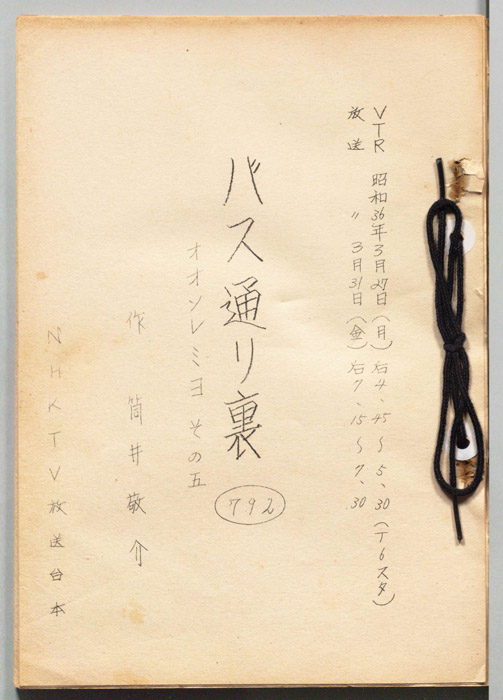 VTR 昭和36年3月27日(月)后4、45〜5、30(T6スタ)
放送 〃 3月31日(金)后7、15〜7、30
バス通り裏
792
オオソレミヨ その五
作 筒井敬介
NHKTV放送台本